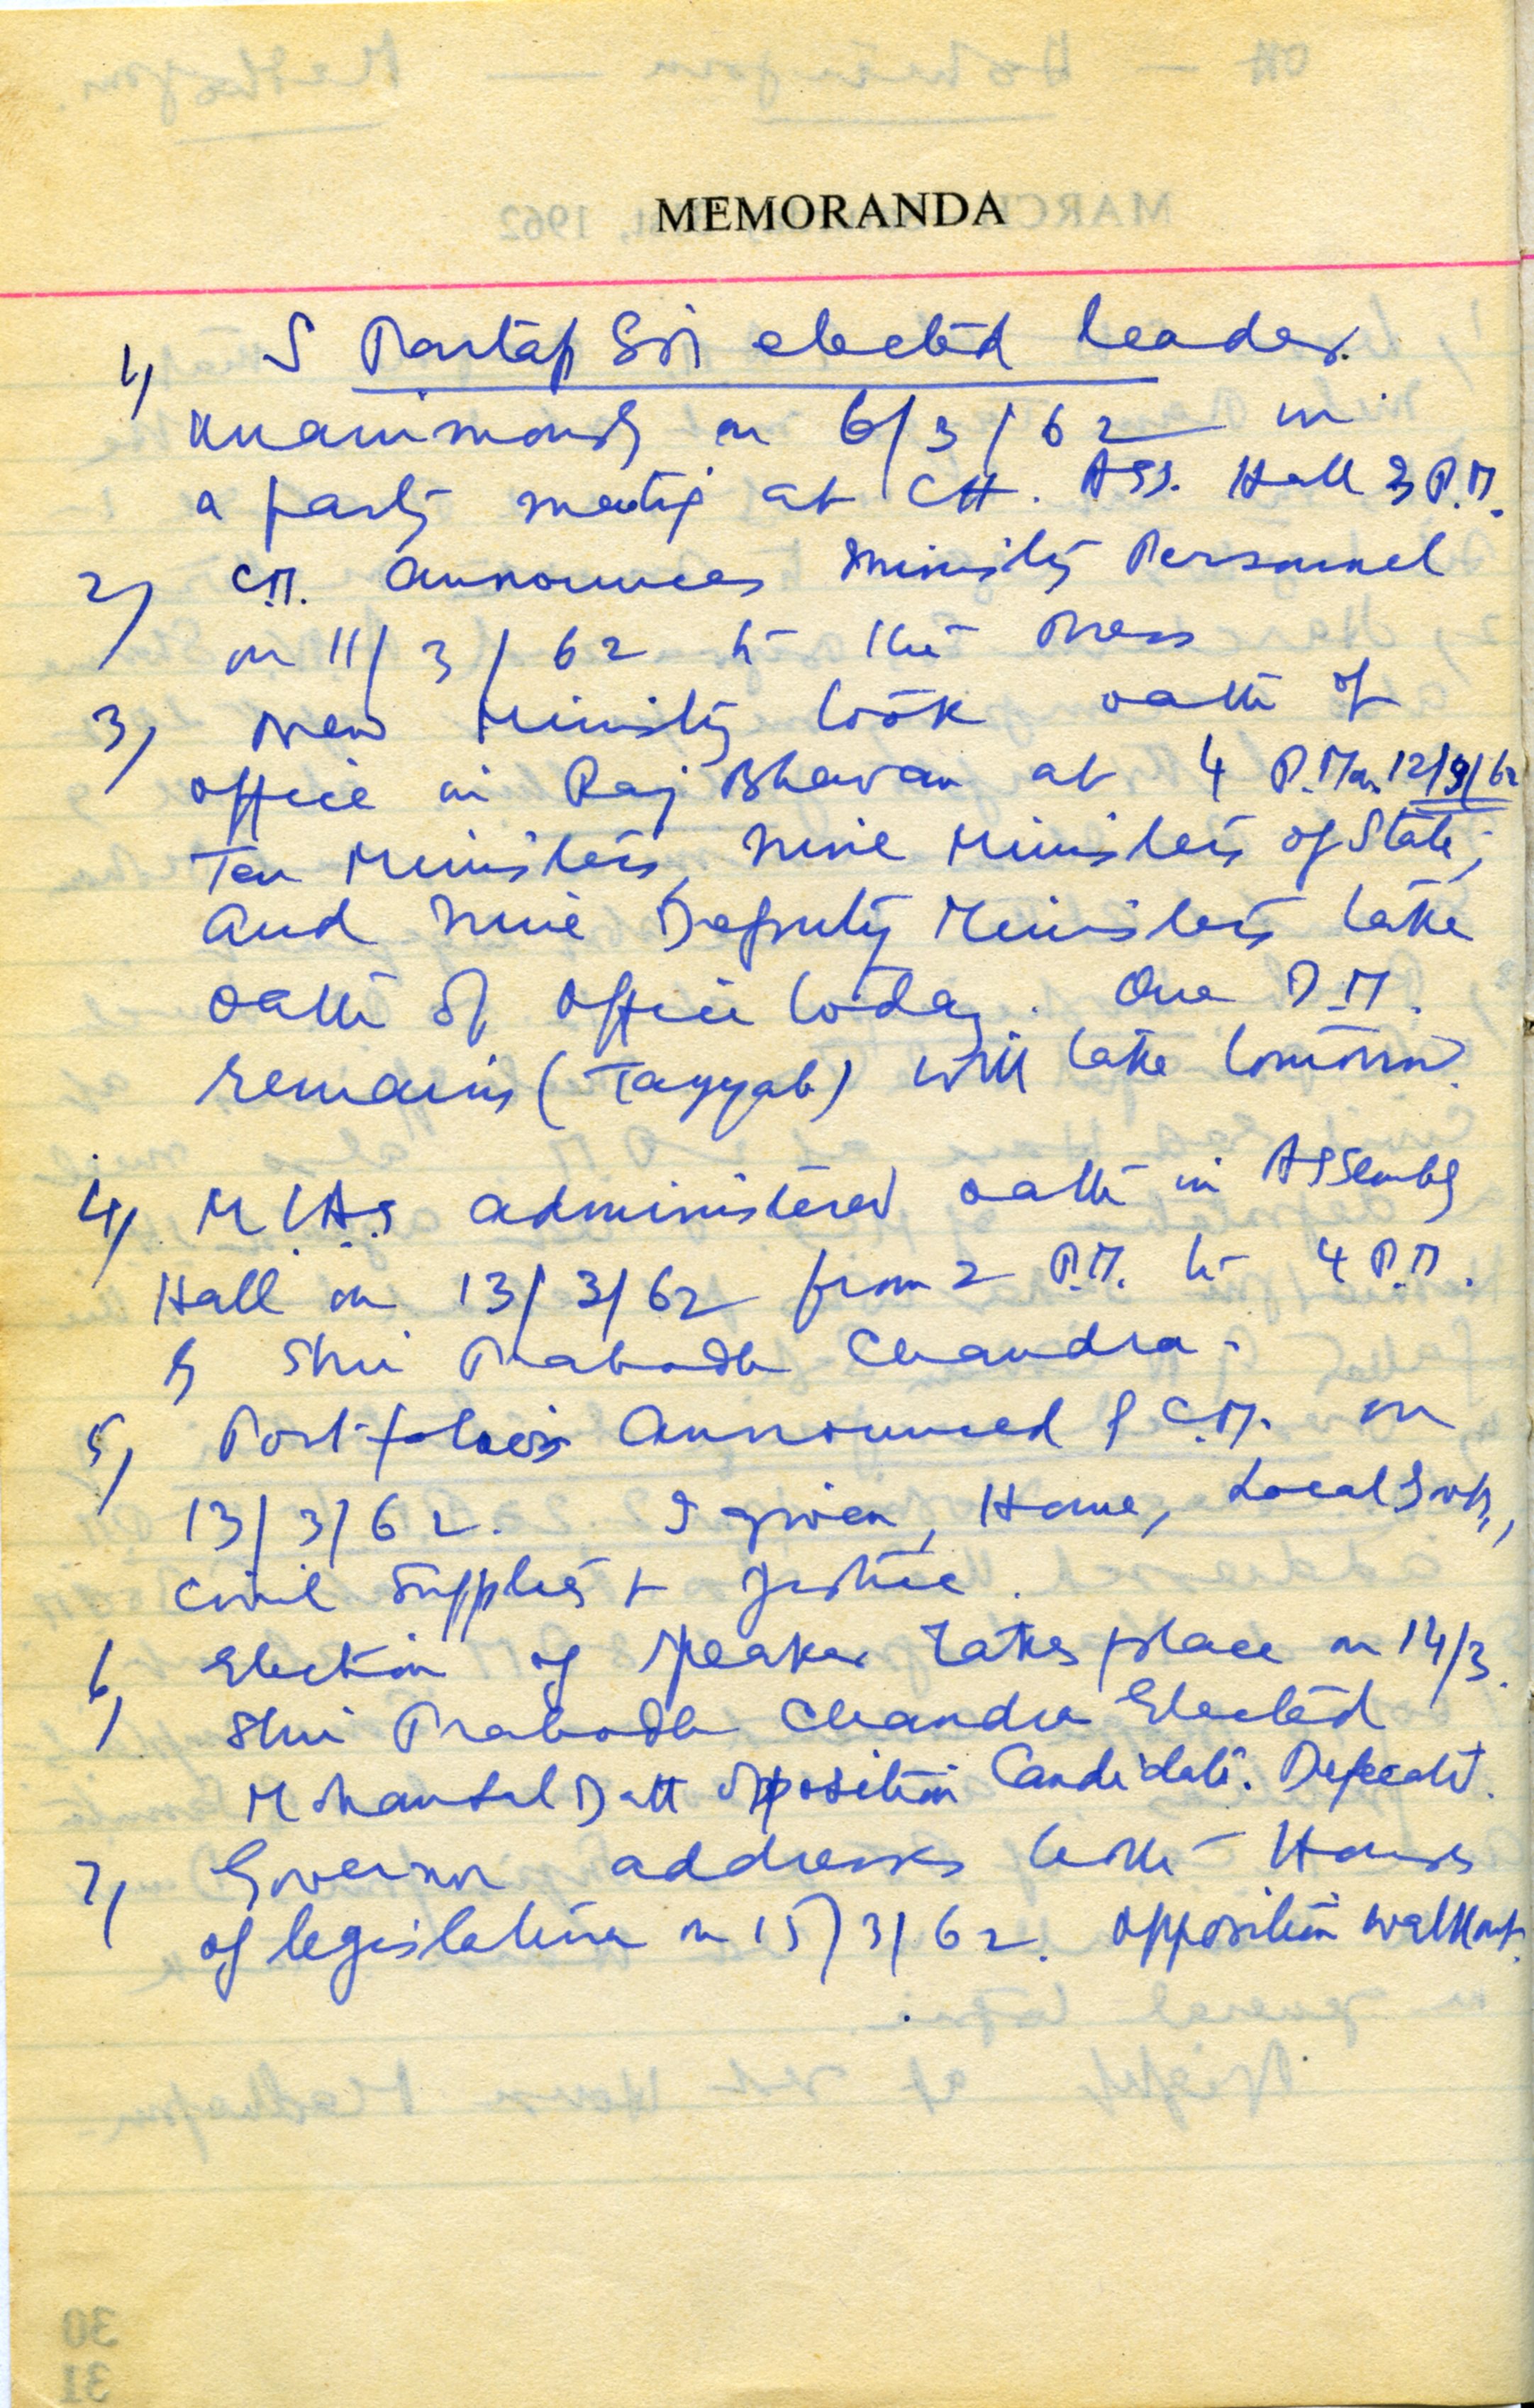 MEMORANDA
1) S Partap Sin elected leader.
unanimously on 6/3/62 in
a party meeting at CH. Ass. Hall 3 P.M.
2) C.M. announces Ministry Personnel
on 11/3/62 to the Press
3) New Ministry took oath of
office in Raj Bhavan at 4 P.M on 12/3/62
Ten Ministers, nine Ministers of State,
and nine Deputy Ministers take
oath of office today. One D.M.
remains (Tayyab) will take tomorrow.
4) M.L.A.s administered oath in Assembly
Hall on 13/3/62 from 2 P.M. to 4 P.M.
by Shri Prabodh Chandra.
5) Portfolios announced by C.M. on
13/3/62. I given, Home, Local Govt,
Civil Supplies + Justice.
6) Election of Speaker takes place on 14/3.
Shri Prabodh Chandra Elected
Mohanlal Datt opposition Candidate. Defeated.
7) Governor addresses both Houses
of legislature on 15/3/62. Opposition walkout.